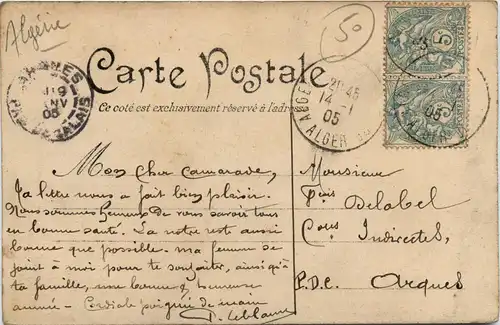 Algérie
50
Carte Postale
Ce côté est exclusivement réservé à l'adresse
PAS-DE-CALAIS
05
ALGER
21 45
14 -1
05
ALGER
5
05
Mon cher camarade,
Ta lettre nous a fait bien plaisir.
Nous sommes heureux de vous savoir tous
en bonne santé. La notre est aussi
bonne que possible. ma femme se
joint à moi pour te souhaiter, ainsi qu'à
ta famille, une bonne & heureuse
année - Cordiale poignée de main
Leblanc
Monsieur
Delabel
Indirectes,
P.D.C. Arques